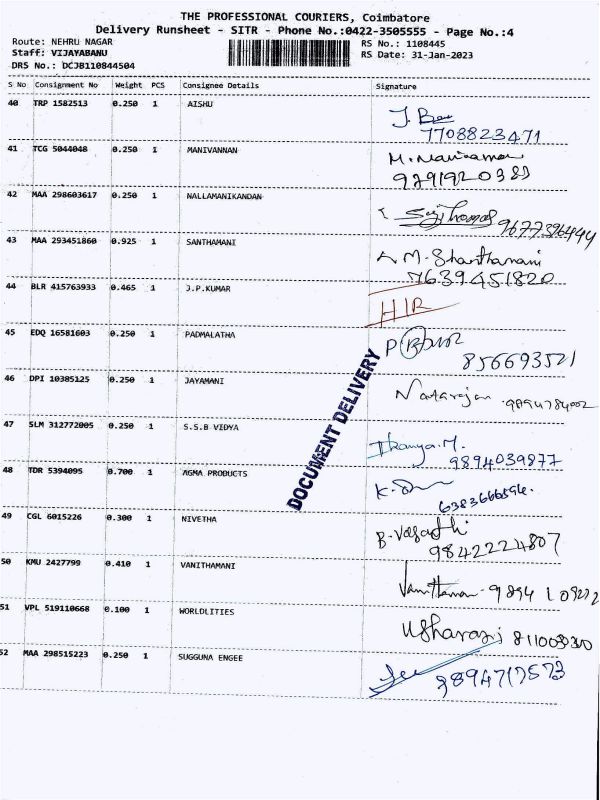 THE PROFESSIONAL COURIERS, Coimbatore
Delivery Runsheet - SITR - Phone No.:0422-3505555 - Page No.:4
Route: NEHRU NAGAR RS No.: 1108445
Staff: VIJAYABANU RS Date: 31-Jan-2023
DRS No.: DCJB110844504
S No Consignment No Weight PCS Consignee Details Signature
40 TRP 1582513 0.250 1 AISHU
7708823471
41 TCG 5044048 0.250 1 MANIVANNAN
42 MAA 298603617 0.250 1 NALLAMANIKANDAN
9677396444
43 MAA 293451860 0.925 1 SANTHAMANI M. Shanthamani
7639451820
44 BLR 415763933 0.465 1 J.P.KUMAR
45 EDQ 16581603 0.250 1 PADMALATHA
856693521
46 DPI 10385125 0.250 1 JAYAMANI Natarajan
47 SLM 312772005 0.250 1 S.S.B VIDYA
9894039877
48 TDR 5394095 0.700 1 AGMA PRODUCTS
49 CGL 6015226 0.300 1 NIVETHA
9842224807
50 KMU 2427799 0.410 1 VANITHAMANI
51 VPL 519110668 0.100 1 WORLDLITIES
52 MAA 298515223 0.250 1 SUGGUNA ENGEE
9894717573
DOCUMENT DELIVERY